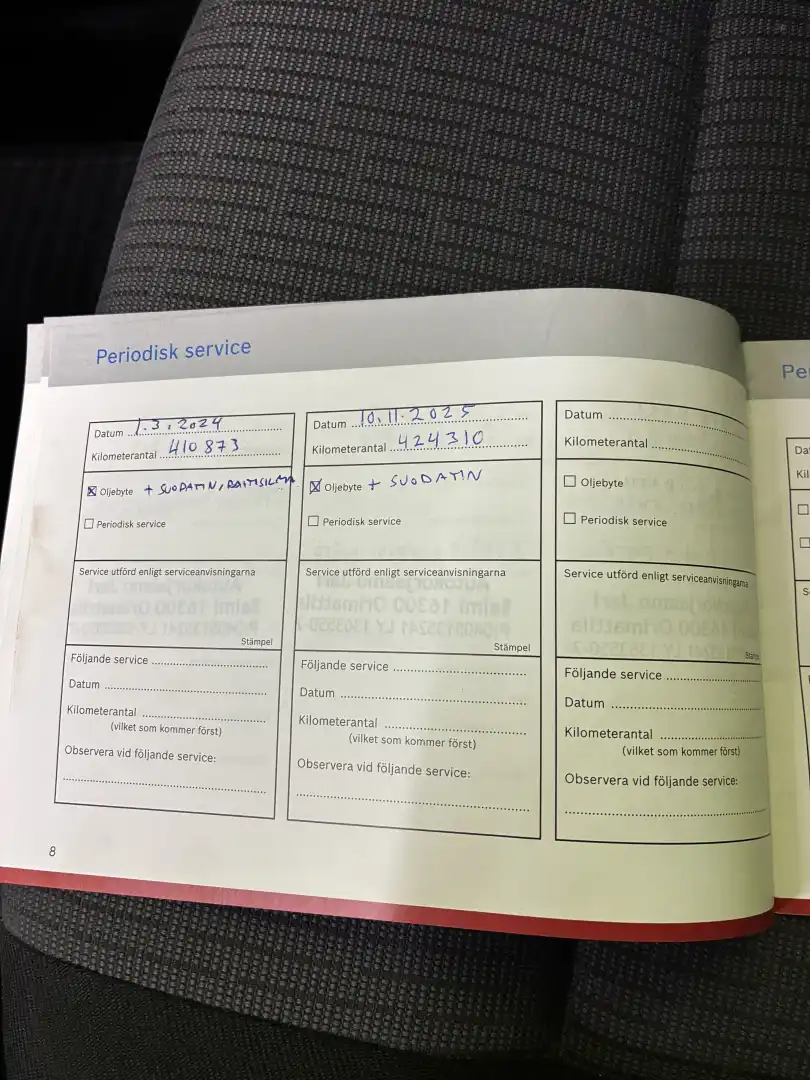 Periodisk service
Datum 1.3.2024
Kilometerantal 410 873
Oljebyte + SUODATIN, RAITISILMA
Periodisk service
Service utförd enligt serviceanvisningarna
Stämpel
Följande service
Datum
Kilometerantal
(vilket som kommer först)
Observera vid följande service:
Datum 10.11.2025
Kilometerantal 424310
Oljebyte + SUODATIN
Periodisk service
Service utförd enligt serviceanvisningarna
Stämpel
Följande service
Datum
Kilometerantal
(vilket som kommer först)
Observera vid följande service:
Datum
Kilometerantal
Oljebyte
Periodisk service
Service utförd enligt serviceanvisningarna
Följande service
Datum
Kilometerantal
(vilket som kommer först)
Observera vid följande service:
8
Pe
Da
Kil
S